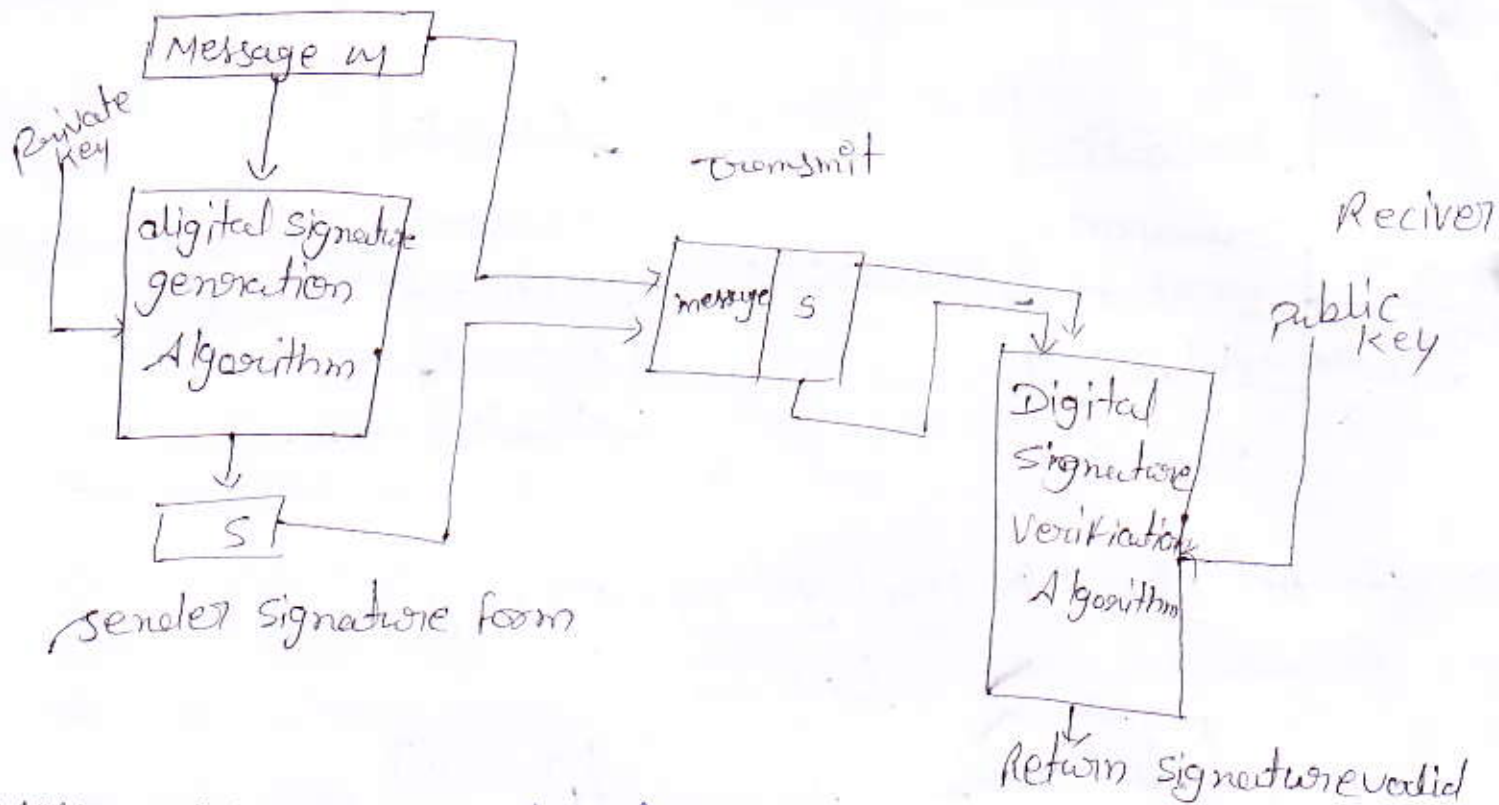 Message M
Private
key
digital signature
genration
Algorithm
S
sender signature form
transmit
message S
Reciver
public
key
Digital
Signature
Verification
Algorithm
Return signature valid